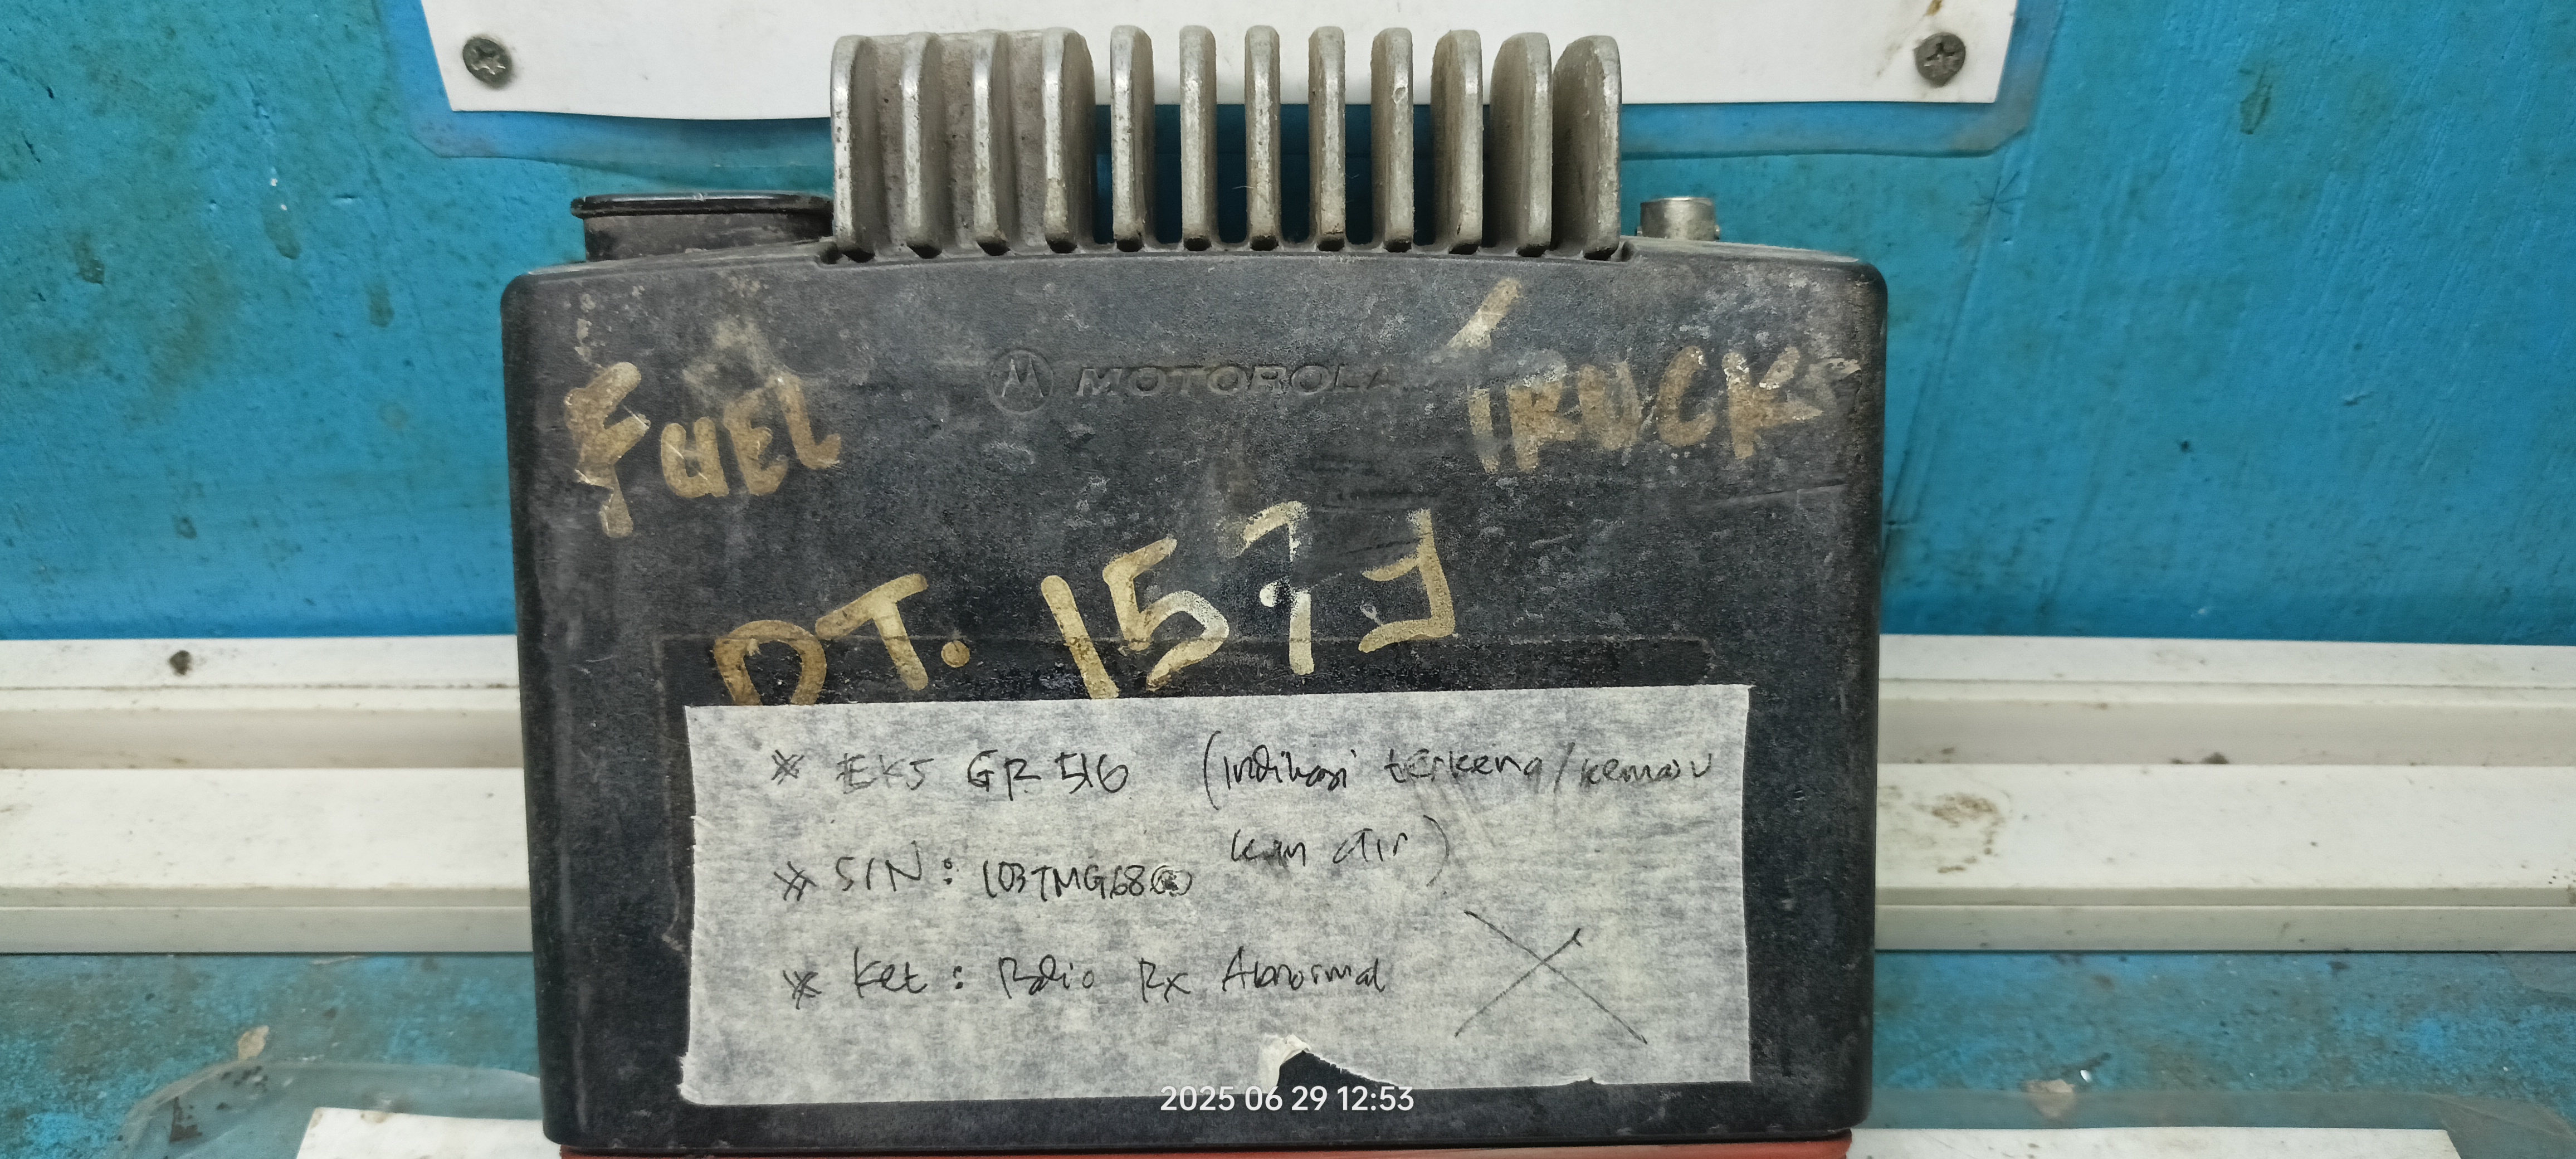 MOTOROLA
FUEL TRUCK
DT. 15
* EKS GR 516 (Indikasi terkena/kemasu
kan air)
* S/N: 103TMG68
* Ket: Radio Rx Abnormal
2025 06 29 12:53